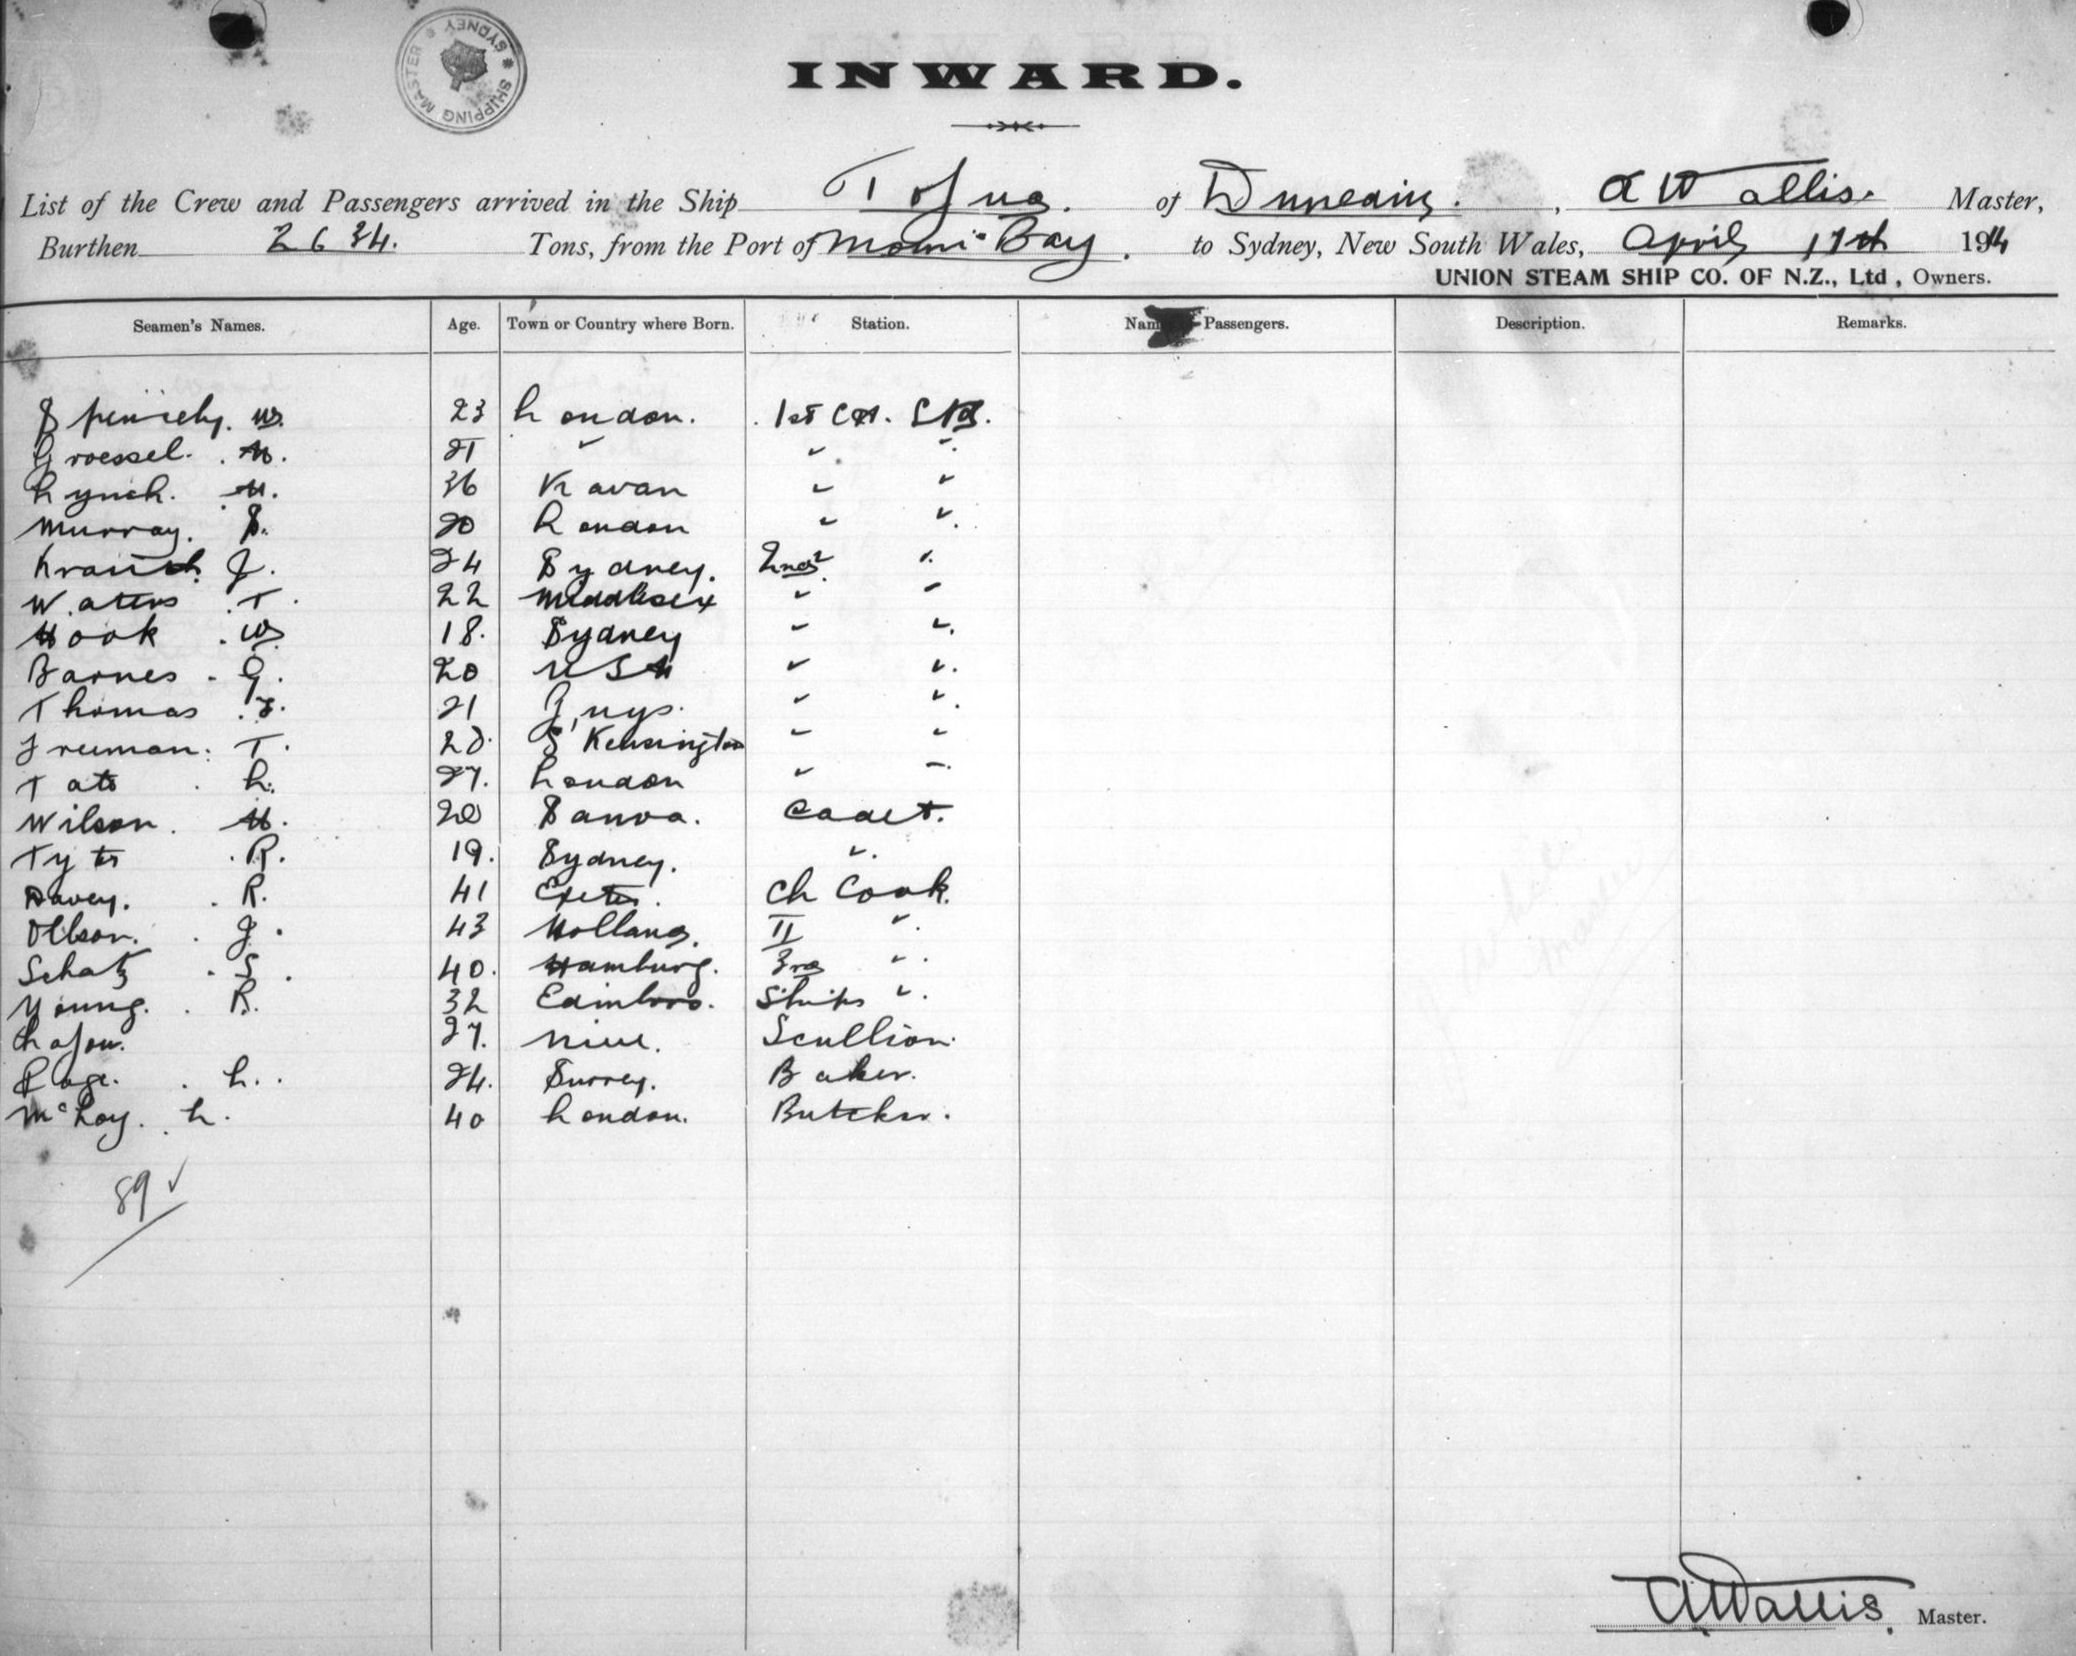 SHIPPING MASTER * SYDNEY *
INWARD.
List of the Crew and Passengers arrived in the Ship Tofua. of Dunedin. , A Wallis. Master,
Burthen 2634. Tons, from the Port of Momi Bay. to Sydney, New South Wales, April 17th 1914
UNION STEAM SHIP CO. OF N.Z., Ltd , Owners.
Seamen's Names. Age. Town or Country where Born. Station. Passengers. Description. Remarks.
W. 23 London. 1st Stg.
Groessel. H. 21 " " "
Lynch. H. 36 Kavan " "
Murray. S. 20 London " "
J. 24 Sydney. 2nd "
Waters T. 22 Middlesex " "
Hook W. 18. Sydney " "
Barnes G. 20 USA " "
Thomas 21 " "
Freeman: T. S Kensington " "
Tate L. 27. London " "
Wilson. H. 20 Samoa. Cadet.
R. 19. Sydney. "
Davey. R. 41 Exeter. Ch Cook.
Ollson. J. 43 Holland. II "
Schatz S. 40. Hamburg. 3rd "
Young. R. 32 Edinboro. Ships "
Lafou. 27. Niue. Scullion.
Page. L. 24. Surrey. Baker.
McLoy. L. 40 London. Butcher.
89 ✓
A Wallis. Master.